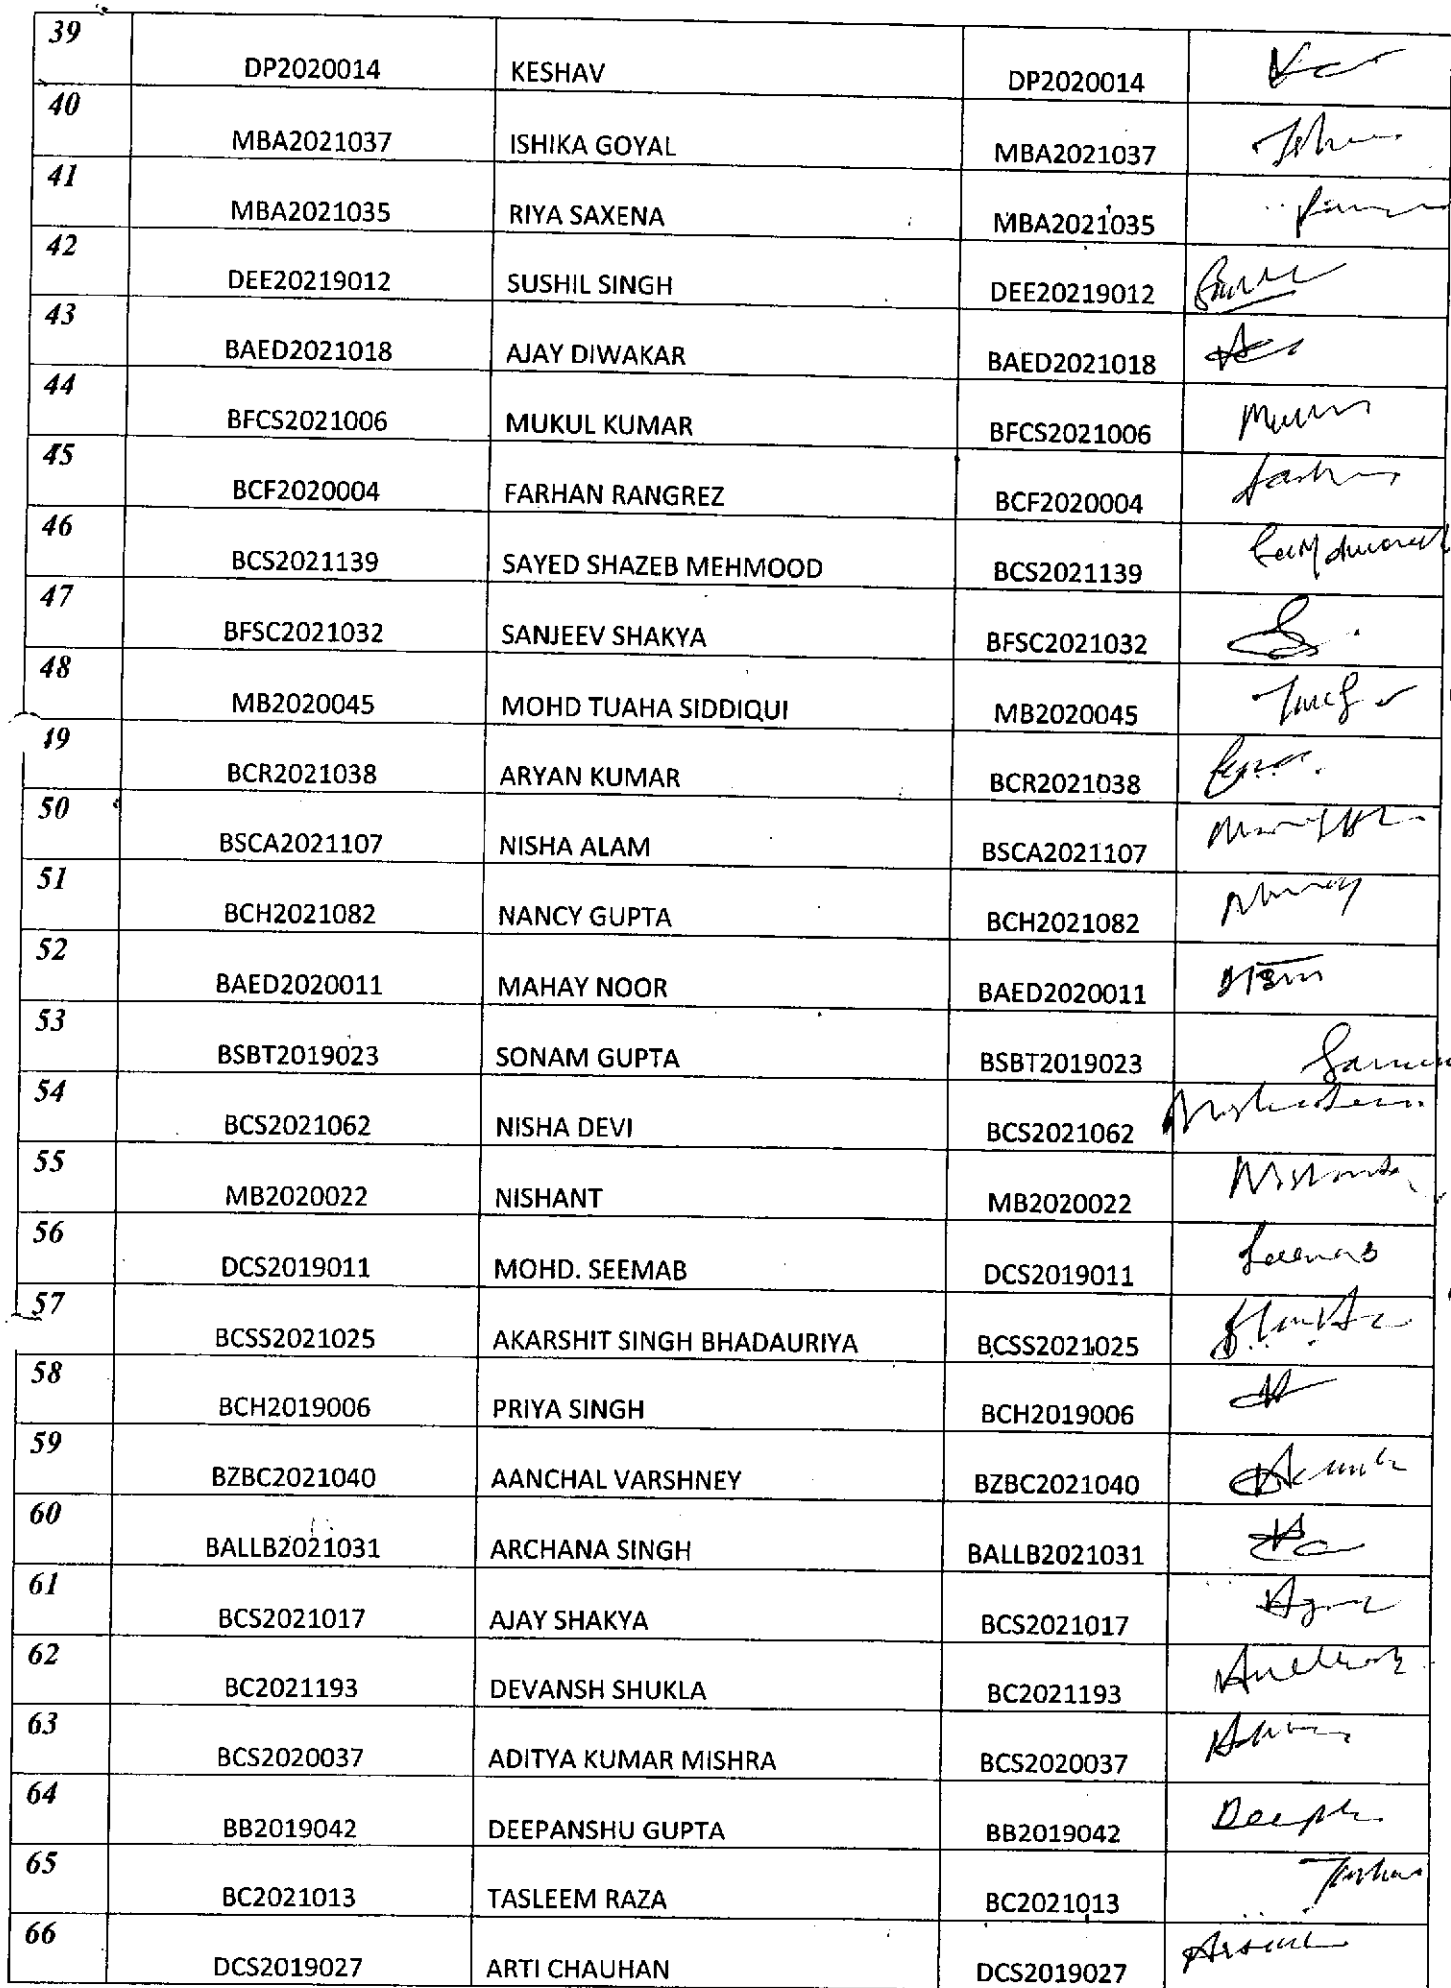 39 DP2020014 KESHAV DP2020014
40 MBA2021037 ISHIKA GOYAL MBA2021037
41 MBA2021035 RIYA SAXENA MBA2021035
42 DEE20219012 SUSHIL SINGH DEE20219012
43 BAED2021018 AJAY DIWAKAR BAED2021018
44 BFCS2021006 MUKUL KUMAR BFCS2021006
45 BCF2020004 FARHAN RANGREZ BCF2020004
46 BCS2021139 SAYED SHAZEB MEHMOOD BCS2021139
47 BFSC2021032 SANJEEV SHAKYA BFSC2021032
48 MB2020045 MOHD TUAHA SIDDIQUI MB2020045
49 BCR2021038 ARYAN KUMAR BCR2021038
50 BSCA2021107 NISHA ALAM BSCA2021107
51 BCH2021082 NANCY GUPTA BCH2021082
52 BAED2020011 MAHAY NOOR BAED2020011
53 BSBT2019023 SONAM GUPTA BSBT2019023
54 BCS2021062 NISHA DEVI BCS2021062
55 MB2020022 NISHANT MB2020022
56 DCS2019011 MOHD. SEEMAB DCS2019011
57 BCSS2021025 AKARSHIT SINGH BHADAURIYA BCSS2021025
58 BCH2019006 PRIYA SINGH BCH2019006
59 BZBC2021040 AANCHAL VARSHNEY BZBC2021040
60 BALLB2021031 ARCHANA SINGH BALLB2021031
61 BCS2021017 AJAY SHAKYA BCS2021017
62 BC2021193 DEVANSH SHUKLA BC2021193
63 BCS2020037 ADITYA KUMAR MISHRA BCS2020037
64 BB2019042 DEEPANSHU GUPTA BB2019042
65 BC2021013 TASLEEM RAZA BC2021013
66 DCS2019027 ARTI CHAUHAN DCS2019027